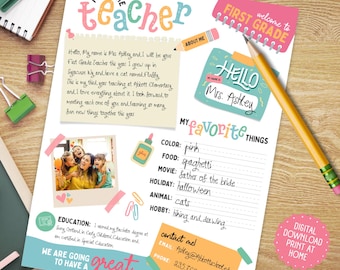 teacher
ABOUT ME
welcome to
FIRST GRADE
Hello, My name is Mrs. Ashley and I will be your
First Grade Teacher this year. I grew up in
and have a cat named
This is my year teaching at Abbott Elementary,
and I love everything about it. I look forward to
meeting each one of you and learning so many
fun new things together this year.
HELLO
Mrs. Ashley
MY favorite THINGS
COLOR: pink
FOOD: spaghetti
MOVIE: father of the bride
HOLIDAY: halloween
ANIMAL: cats
HOBBY: hiking and drawing
EDUCATION: I earned my Bachelor degree at
in Early Childhood Education and
am certified in Special Education.
contact me!
EMAIL
PHONE
WE ARE GOING
TO HAVE A great
DIGITAL
DOWNLOAD
PRINT AT
HOME